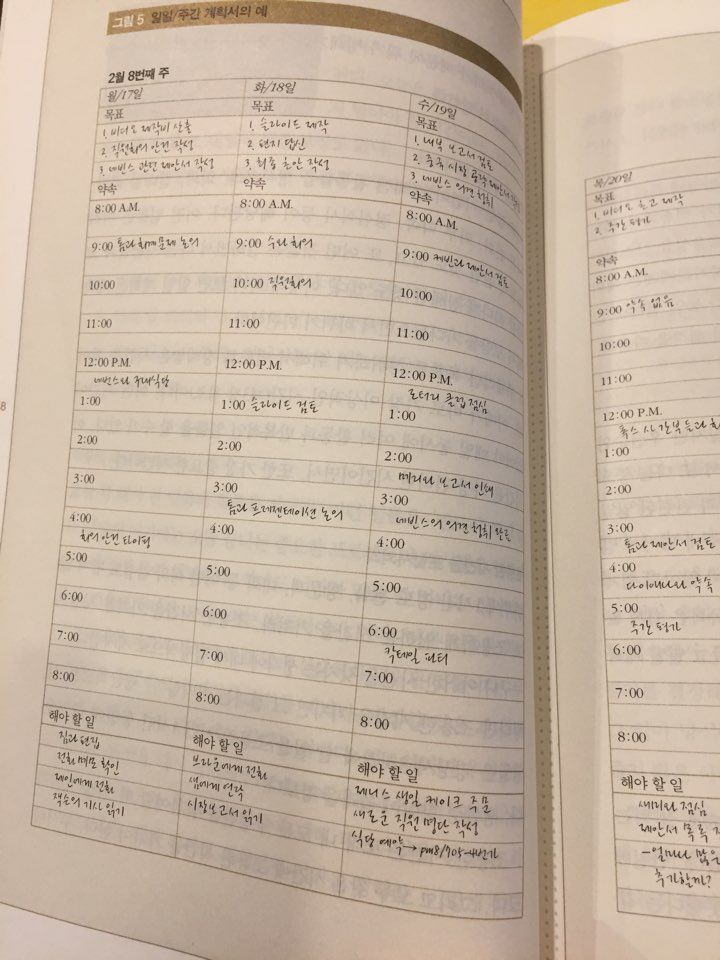 그림 5 일일/주간 계획서의 예
2월 8번째 주
월/17일
목표
1. 비디오 제작비 산출
2. 직원회의 안건 작성
3. 네빈스 관련 제안서 작성
약속
8:00 A.M.
9:00 톰과 회계문제 논의
10:00
11:00
12:00 P.M.
네빈스와 주래식당
1:00
2:00
3:00
4:00
회의 안건 타이핑
5:00
6:00
7:00
8:00
해야 할 일
짐과 편집
전화 메모 확인
제인에게 전화
잭슨의 기사 읽기
화/18일
목표
1. 슬라이드 제작
2. 편지 답신
3. 최종 초안 작성
약속
8:00 A.M.
9:00 수와 회의
10:00 직원회의
11:00
12:00 P.M.
1:00 슬라이드 검토
2:00
3:00
톰과 프레젠테이션 논의
4:00
5:00
6:00
7:00
8:00
해야 할 일
브라운에게 전화
샘에게 연락
시장보고서 읽기
수/19일
목표
1. 내부 보고서 검토
2. 중국 시장 공략 제안서
3. 네빈스 의견 청취
약속
8:00 A.M.
9:00 케빈과 제안서 검토
10:00
11:00
12:00 P.M.
로터리 클럽 점심
1:00
2:00
메리와 보고서 인쇄
3:00
네빈스의 의견 청취 완료
4:00
5:00
6:00
칵테일 파티
7:00
8:00
해야 할 일
제니스 생일 케이크 주문
새로운 직원 명단 작성
식당 예약→pm8/705-4번가
목/20일
목표
1. 비디오 촌고 제작
2. 주간 평가
약속
8:00 A.M.
9:00 약속 없음
10:00
11:00
12:00 P.M.
폭스 사 간부들과
1:00
2:00
3:00
톰과 제안서 검토
4:00
다이애나와 약속
5:00
주간 평가
6:00
7:00
8:00
해야 할 일
새미와 점심
제안서 목록
-얼마나 많은
추가할까?
8